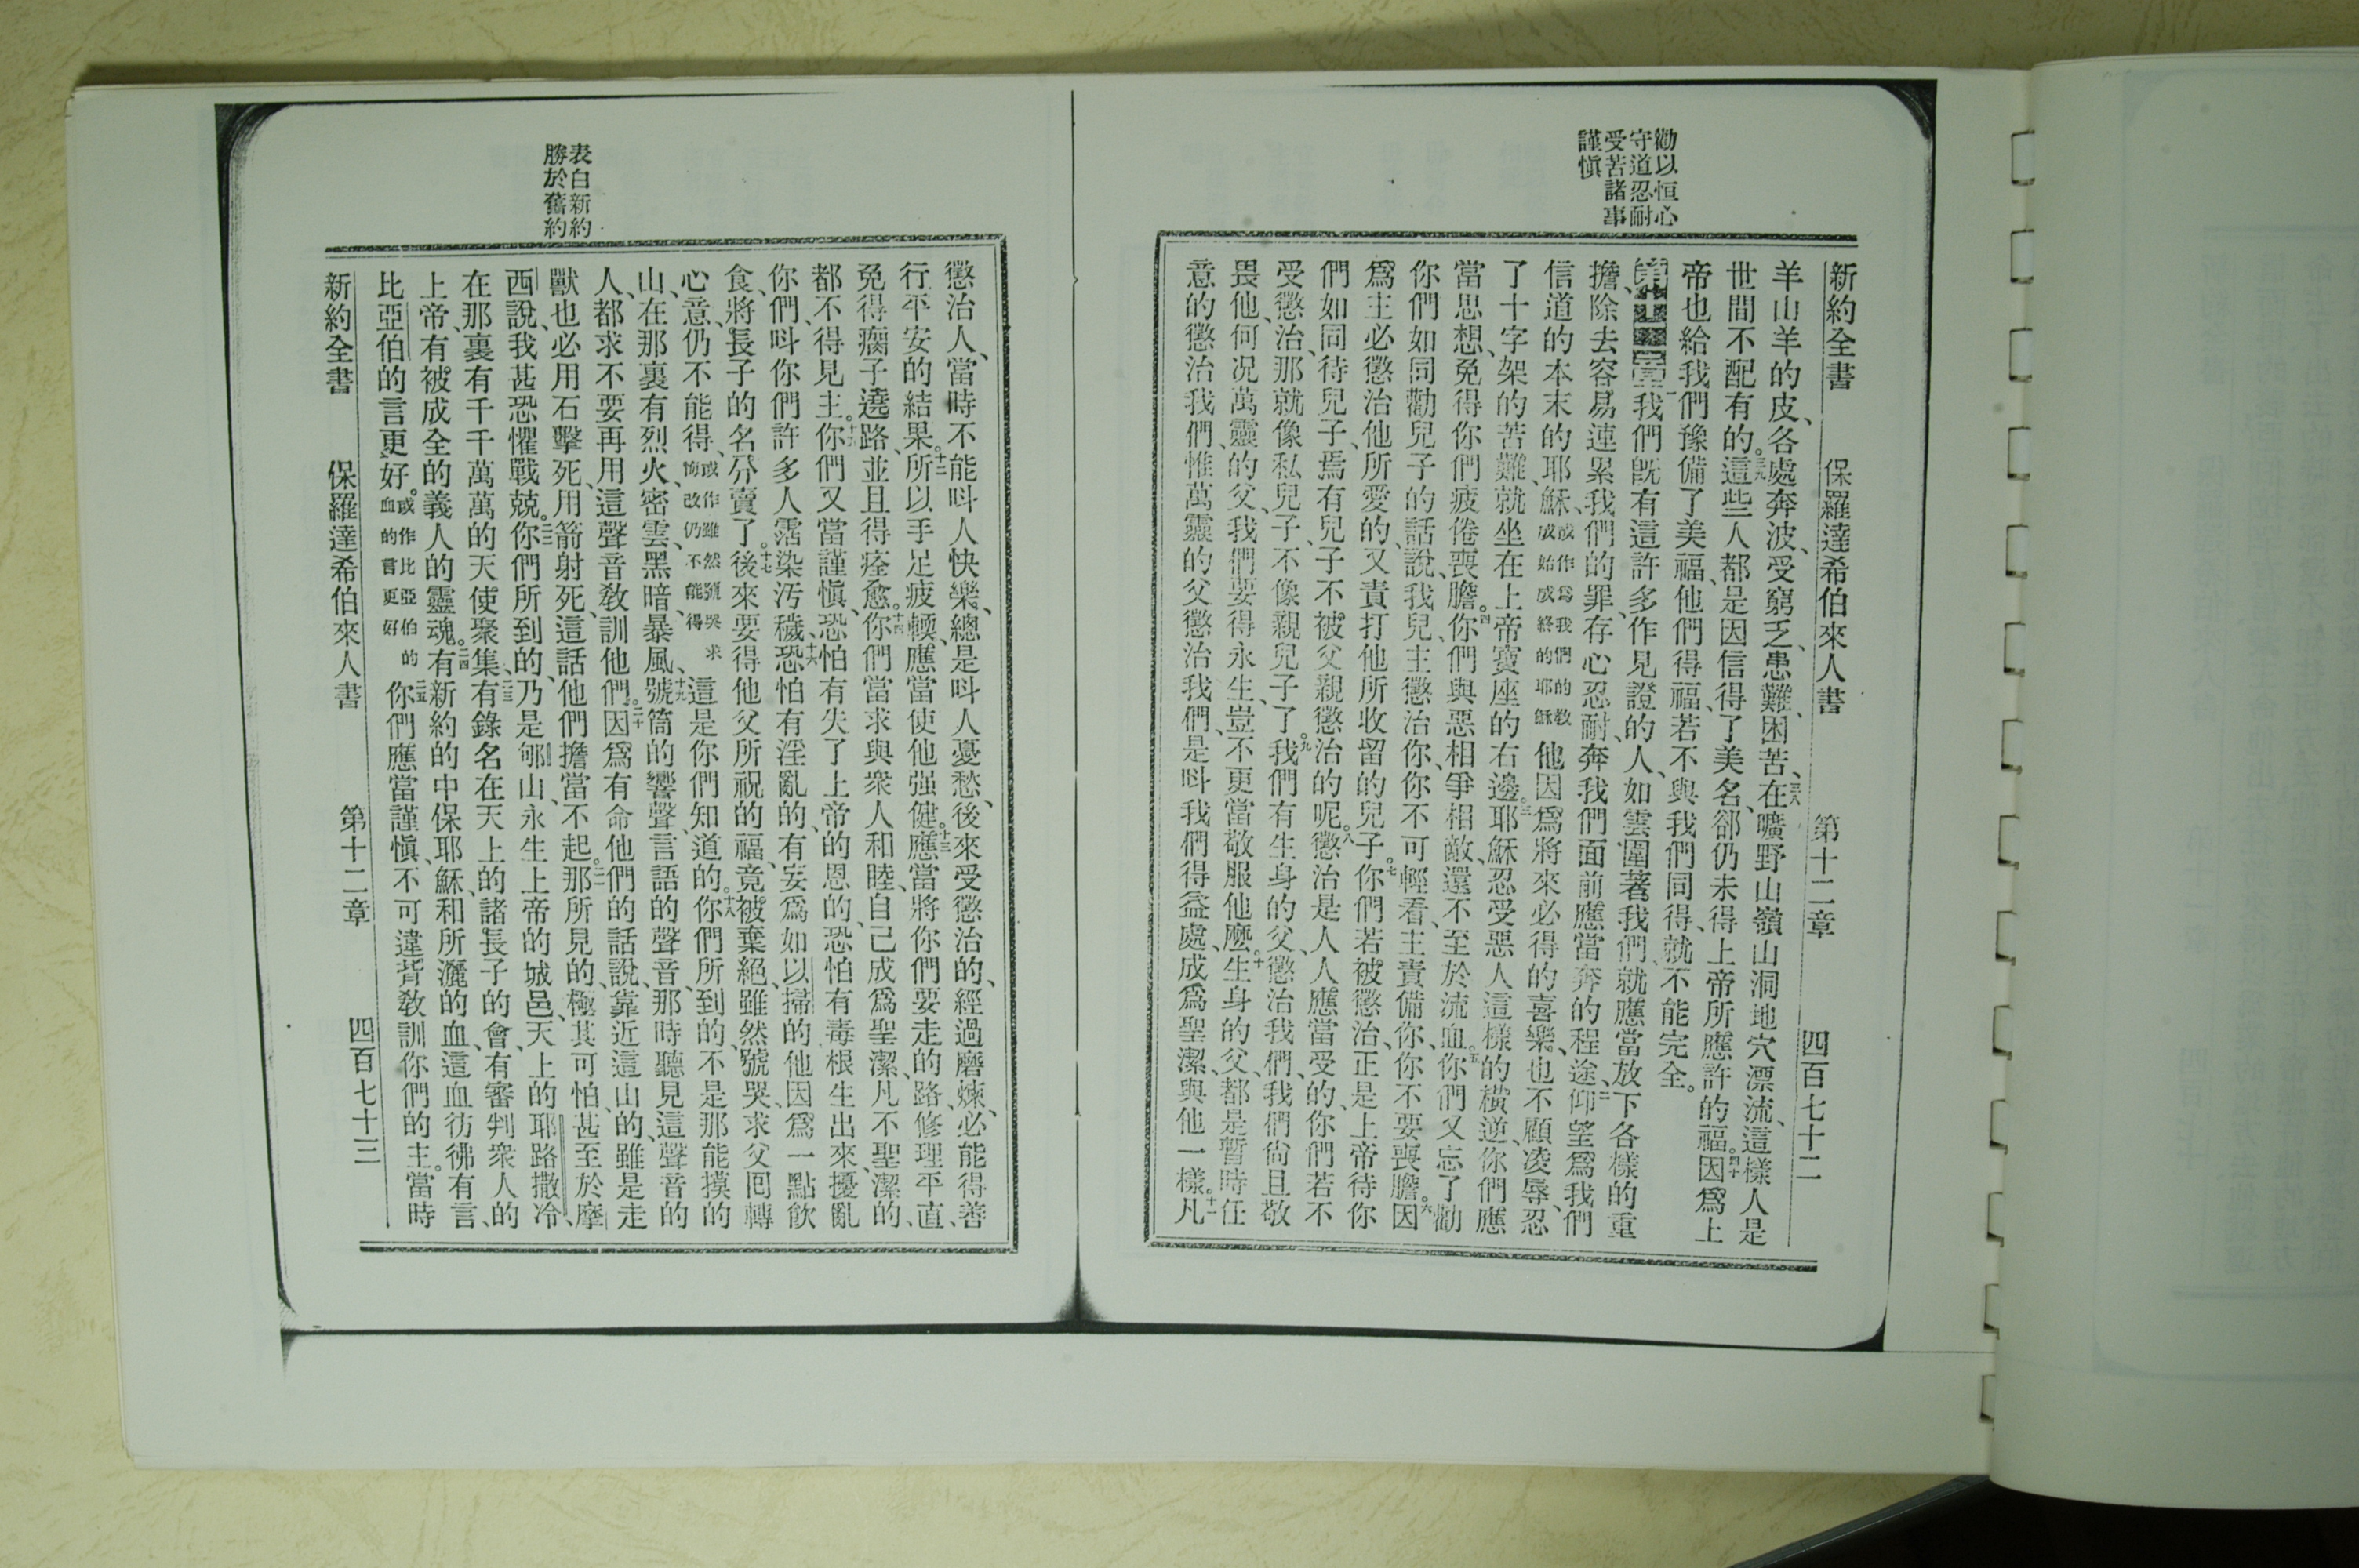 勸以恒心
守道忍耐
受苦諸事
謹愼
新約全書 保羅達希伯來人書 第十二章 四百七十二
羊山羊的皮、各處奔波、受窮乏、患難、困苦、三八在曠野山嶺山洞地穴漂流、這樣人是
世間不配有的。三九這些人都是因信得了美名、郤仍未得上帝所應許的福。四十因爲上
帝也給我們豫備了美福、他們得福、若不與我們同得、就不能完全。
第十二章一我們旣有這許多作見證的人、如雲圍著我們、就應當放下各樣的重
擔、除去容易連累我們的罪、存心忍耐、奔我們面前應當奔的程途、二仰望爲我們
信道的本末的耶穌、或作爲我們的敎成始成終的耶穌他因爲將來必得的喜樂、也不顧凌辱、忍
了十字架的苦難、就坐在上帝寶座的右邊。三耶穌忍受惡人這樣的橫逆、你們應
當思想、免得你們疲倦喪膽。四你們與惡相爭相敵、還不至於流血。五你們又忘了勸
你們如同勸兒子的話說、我兒、主懲治你、你不可輕看、主責備你、你不要喪膽。六因
爲主必懲治他所愛的、又責打他所收留的兒子。七你們若被懲治、正是上帝待你
們如同待兒子、焉有兒子不被父親懲治的呢。八懲治是人人應當受的、你們若不
受懲治、那就像私兒子、不像親兒子了。九我們有生身的父、懲治我們、我們尙且敬
畏他、何况萬靈的父、我們要得永生、豈不更當敬服他麽。十生身的父、都是暫時任
意的懲治我們、惟萬靈的父懲治我們、是呌我們得益處、成爲聖潔、與他一樣。十一凡
表白新約
勝於舊約
懲治人、當時不能呌人快樂、總是呌人憂愁、後來受懲治的、經過磨煉、必能得善
行平安的結果。十二所以手足疲輭、應當使他强健。十三應當將你們要走的路、修理平直、
免得瘸子遶路、並且得痊愈。十四你們當求與衆人和睦、自己成爲聖潔、凡不聖潔的、
都不得見主。十五你們又當謹愼、恐怕有失了上帝的恩的、恐怕有毒根生出來、擾亂
你們、呌你們許多人霑染汚穢、十六恐怕有淫亂的、有妄爲如以掃的、他因爲一點飮
食、將長子的名分賣了。十七後來要得他父所祝的福、竟被棄絕、雖然號哭、求父囘轉
心意、仍不能得、或作雖然號哭求悔改仍不能得這是你們知道的。十八你們所到的、不是那能摸的
山、在那裏有烈火、密雲、黑暗、暴風、十九號筒的響聲、言語的聲音、那時聽見這聲音的
人、都求不要再用這聲音敎訓他們。二十因爲有命他們的話說、靠近這山的、雖是走
獸也必用石擊死、用箭射死、這話他們擔當不起。二一那所見的、極其可怕、甚至於摩
西說、我甚恐懼戰兢。二二你們所到的、乃是郇山、永生上帝的城邑、天上的耶路撒冷、
在那裏有千千萬萬的天使聚集、二三有錄名在天上的諸長子的會、有審判衆人的
上帝、有被成全的義人的靈魂。二四有新約的中保耶穌、和所灑的血、這血彷彿有言、
比亞伯的言更好。或作比亞伯的血的言更好二五你們應當謹愼、不可違背敎訓你們的主。當時
新約全書 保羅達希伯來人書 第十二章 四百七十三